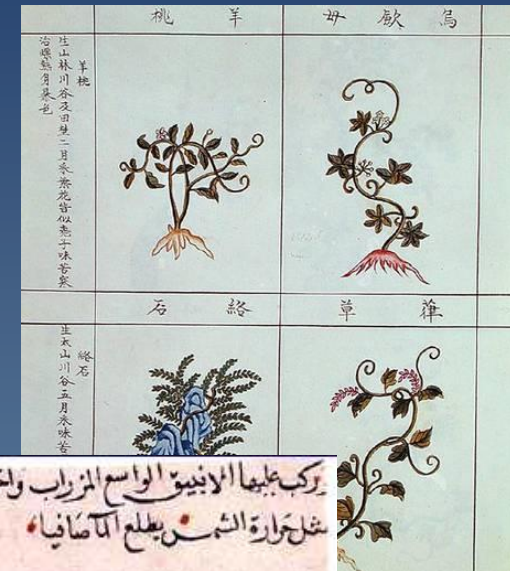 烏歛母
羊桃
羊桃
生山林川谷及田 二月采葉花皆似桃子味苦寒
治熛熱身暴
葎草
絡石
絡石
生太山川谷五月采味苦
يركب عليها الانبيق الواسع المزراب
مثل حرارة الشمس يطلع الما صافيا